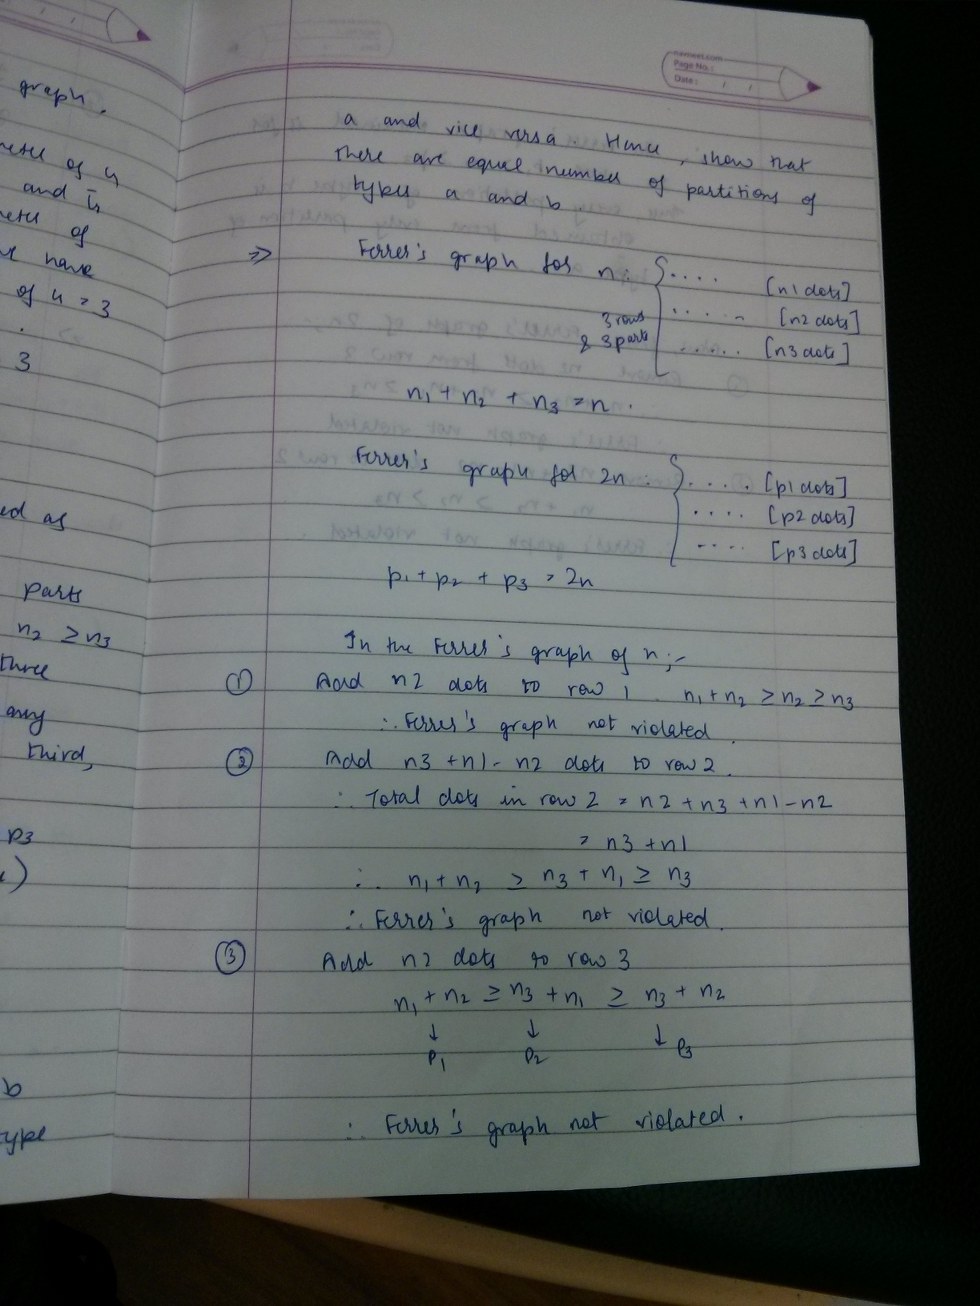 graph.
of 4
and
of
have
of 4 = 3
3
ed as
parts
n2 ≥ n3
three
any
third,
p3
b
type
Page No.:
Date:
a and vice versa Hence, show that
there are equal number of partitions of
types a and b
⇒ Ferrer's graph for n: .... [n1 dots]
..... [n2 dots]
3 rows
& 3 parts ..... [n3 dots]
n1 + n2 + n3 = n.
Ferrer's graph for 2n: ..... [p1 dots]
.... [p2 dots]
.... [p3 dots]
p1 + p2 + p3 = 2n
In the Ferrer's graph of n;-
① Add n2 dots to row 1 n1 + n2 ≥ n2 ≥ n3
∴ Ferrer's graph not violated.
② Add n3 + n1 - n2 dots to row 2.
∴ Total dots in row 2 = n2 + n3 + n1 - n2
= n3 + n1
∴ n1 + n2 ≥ n3 + n1 ≥ n3
∴ Ferrer's graph not violated.
③ Add n2 dots to row 3
n1 + n2 ≥ n3 + n1 ≥ n3 + n2
↓ ↓ ↓
P1 P2 P3
∴ Ferrer's graph not violated.